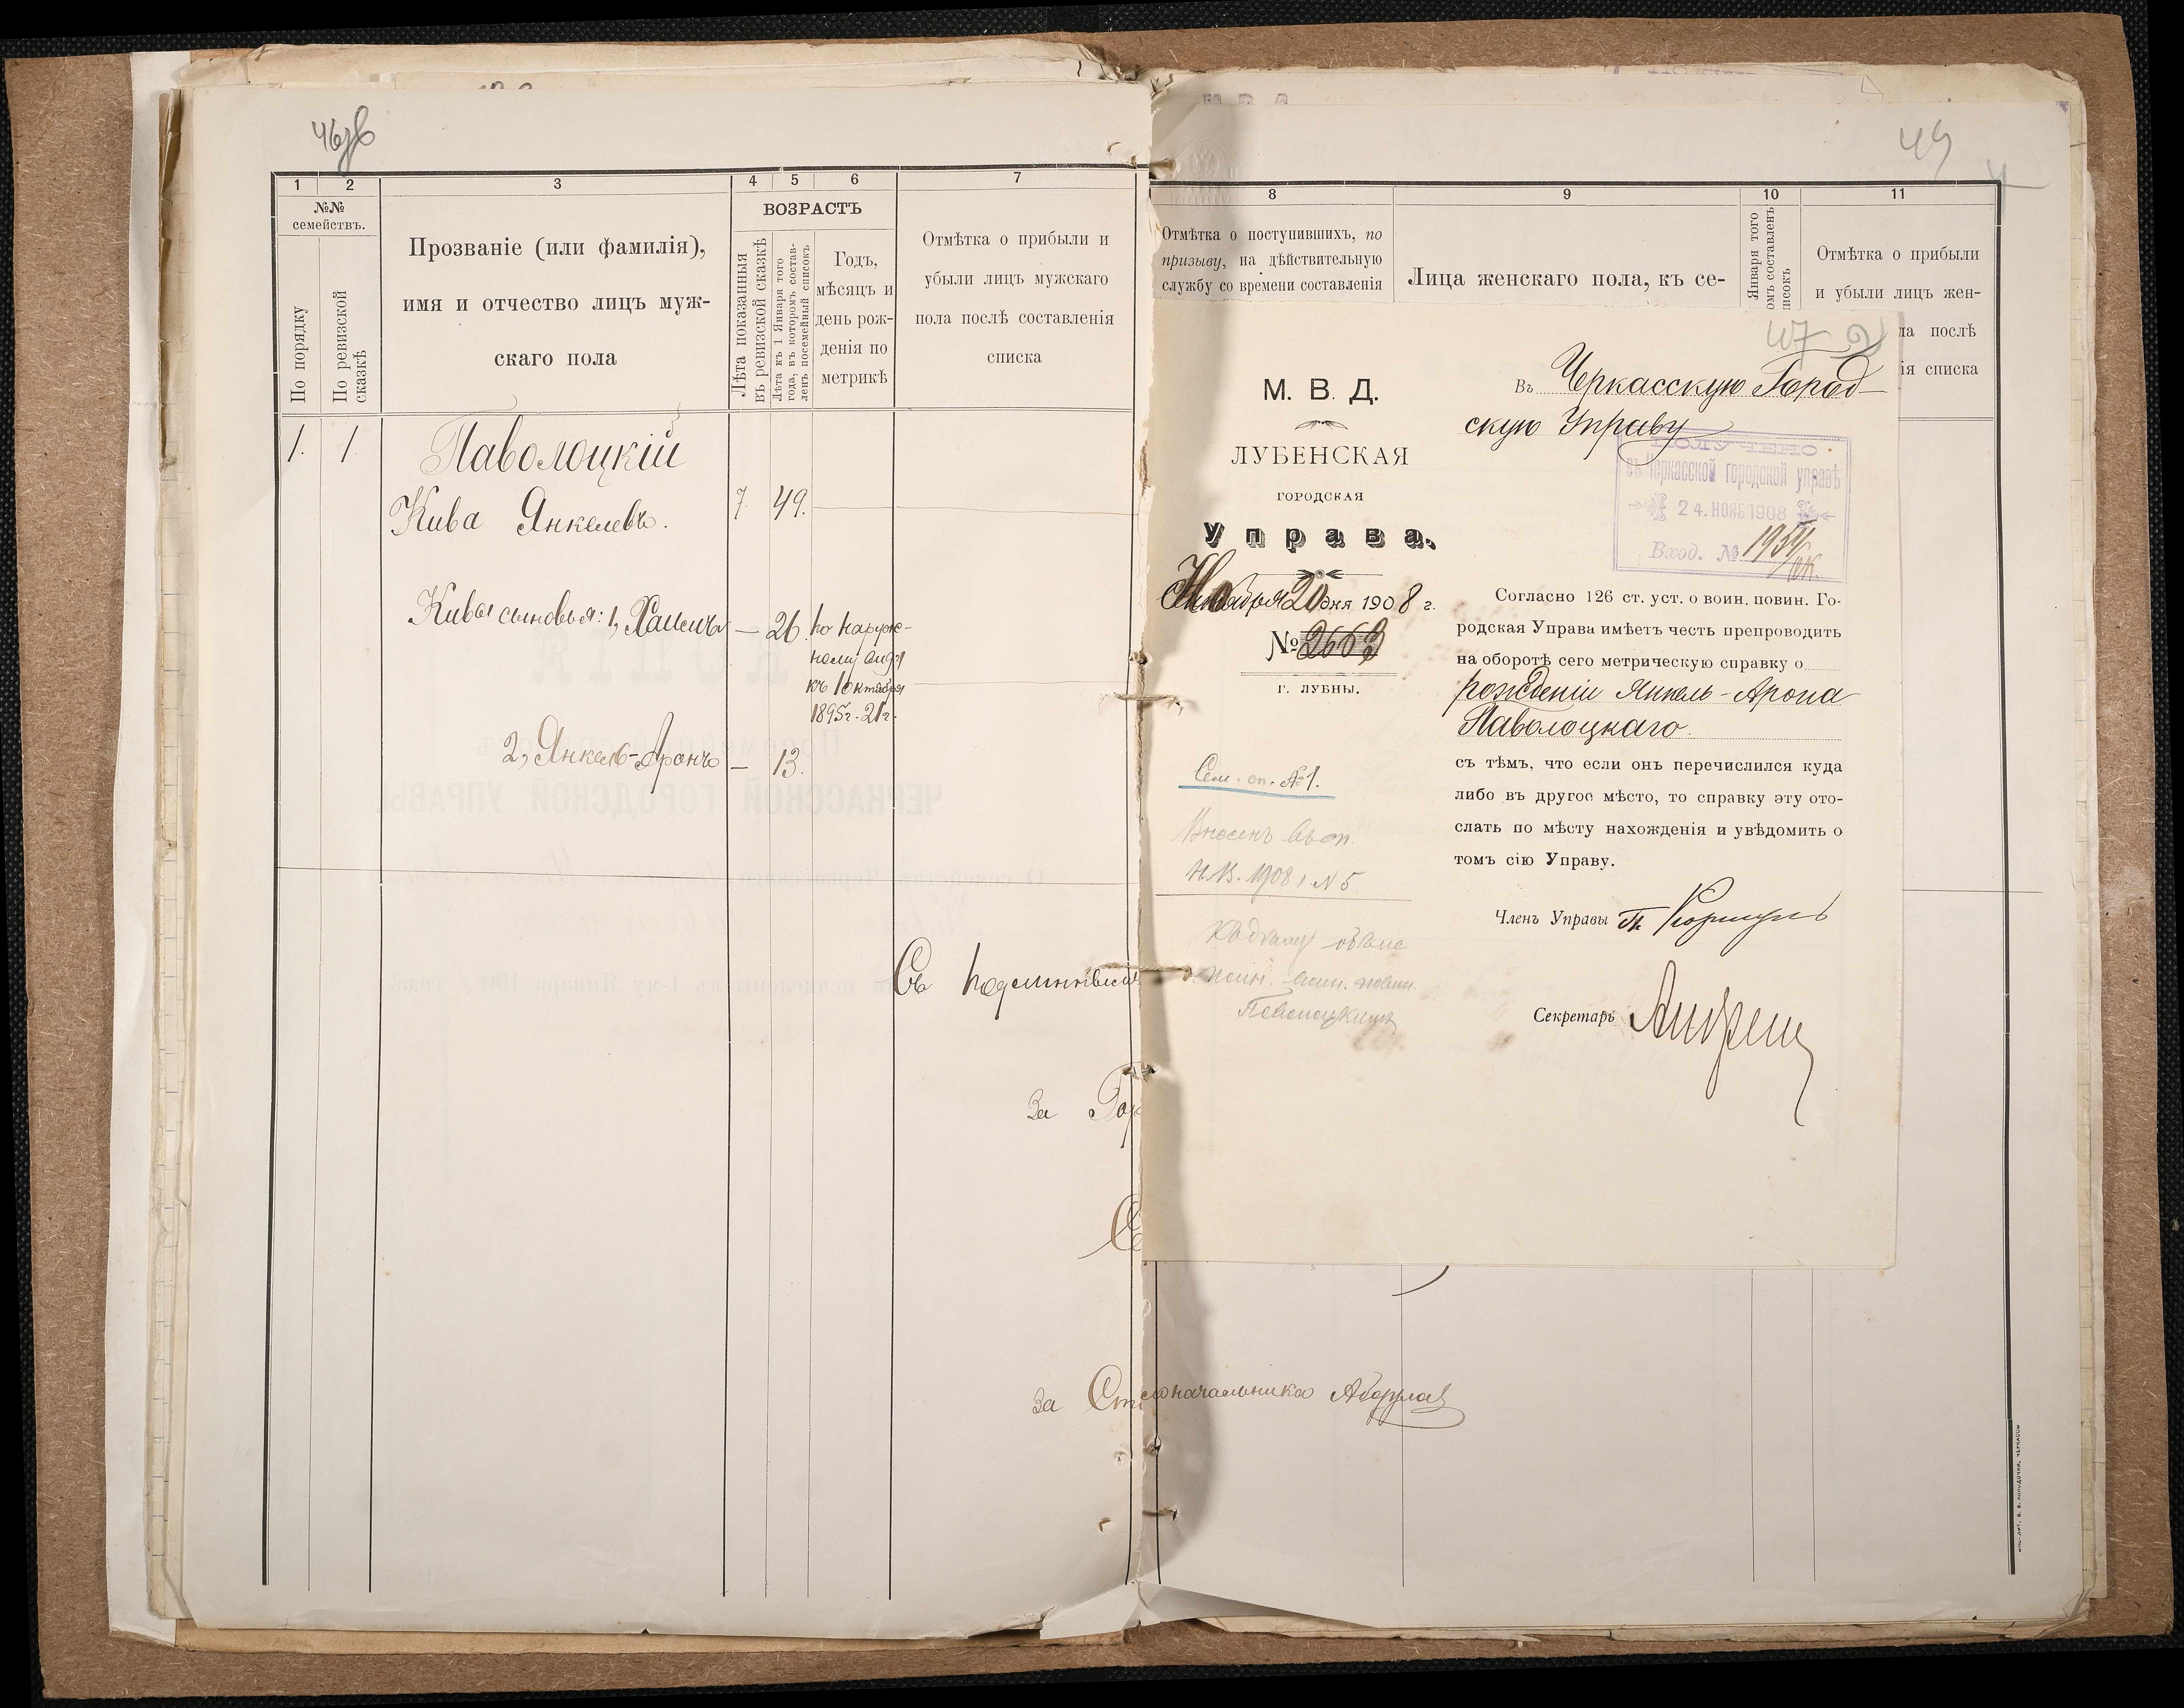 46об
1
2
3
4
5
6
7
№№
семействъ.
По порядку
По ревизской
сказкѣ
Прозваніе (или фамилія),
имя и отчество лицъ муж-
скаго пола
ВОЗРАСТЪ
Лѣта показанныя
въ ревизской сказкѣ
Лѣта къ 1 Января того
года, въ которомъ состав-
ленъ посемейный списокъ
Годъ,
мѣсяцъ и
день рож-
денія по
метрикѣ
Отмѣтка о прибыли и
убыли лицъ мужскаго
пола послѣ составленія
списка
1. 1. Паволоцкій
Кива Янкелевъ. 7. 49.
Кивы сыновья: 1, Хаимъ — 26. по наруж-
ному виду
къ 1 октября
1895г. 21г.
2, Янкель-Аронъ — 13.
Съ подлиннымъ
За Гор
Се
За Столоначальника
49
8
9
10
11
Отмѣтка о поступившихъ, по
призыву, на дѣйствительную
службу со времени составленія
Лица женскаго пола, къ се-
Января того
омъ составленъ
писокъ
Отмѣтка о прибыли
и убыли лицъ жен-
ла послѣ
ія списка
47
М. В. Д.
ЛУБЕНСКАЯ
ГОРОДСКАЯ
Управа.
Ноября 20 дня 1908 г.
№ 2663
Г. ЛУБНЫ.
Сем. сп. № 1.
Внесенъ въ сп.
1908 г. № 5
Въ Черкасскую Город-
скую Управу
ПОЛУЧЕНО
въ Черкасской городской управѣ
24. НОЯБ 1908
Вход. №
Согласно 126 ст. уст. о воин. повин. Го-
родская Управа имѣетъ честь препроводить
на оборотѣ сего метрическую справку о
рожденіи Янкель-Арона
Паволоцкаго.
съ тѣмъ, что если онъ перечислился куда
либо въ другое мѣсто, то справку эту ото-
слать по мѣсту нахожденія и увѣдомить о
томъ сію Управу.
Членъ Управы
Секретарь